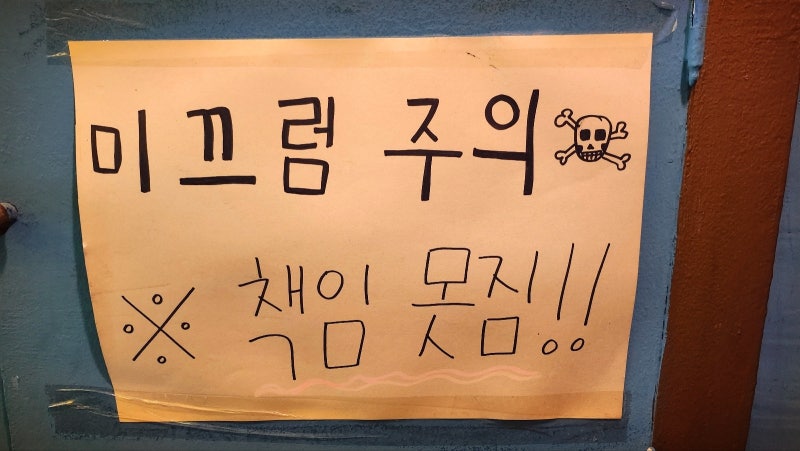 미끄럼 주의
※ 책임 못짐!!